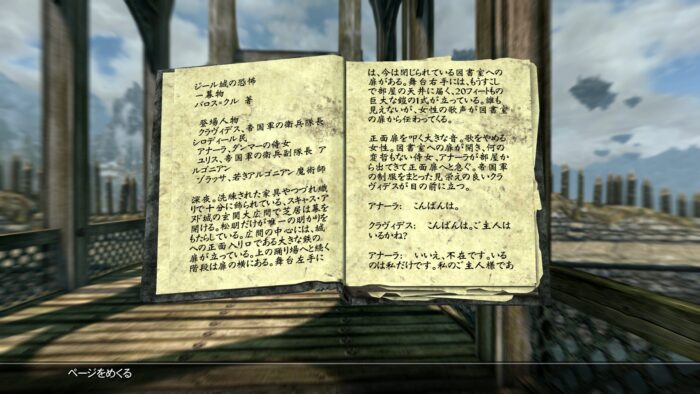 ジール城の恐怖
一幕物
バロス＝クル 著
登場人物
クラヴィデス、帝国軍の衛兵隊長
シロディール民
アナーラ、ダンマーの侍女
ユリス、帝国軍の衛兵副隊長 ア
ルゴニアン
ゾラッサ、若きアルゴニアン魔術師
深夜。洗練された家具やつづれ織
りで十分に飾られている、スキャス・ア
ヌド城の玄関大広間で芝居は幕を
開ける。松明だけが唯一の明かりを
もたらしている。広間の中心には、城
への正面入り口である大きな鉄の
扉が立っている。上の踊り場へと続く
階段は扉の横にある。舞台左手に
は、今は閉じられている図書室への
扉がある。舞台右手には、もうすこし
で部屋の天井に届く、20フィートもの
巨大な鎧の1式が立っている。誰も
見えないが、女性の歌声が図書室
の扉から伝わってくる。
正面扉を叩く大きな音。歌をやめる
女性。図書室への扉が開き、何の
変哲もない侍女、アナーラが部屋か
ら出てきて正面扉へと急ぐ。帝国軍
の制服をまとった見栄えの良いクラ
ヴィデスが目の前に立つ。
アナーラ: こんばんは。
クラヴィデス: こんばんは。ご主人は
いるかね?
アナーラ: いいえ、不在です。いる
のは私だけです。私のご主人様であ
ページをめくる